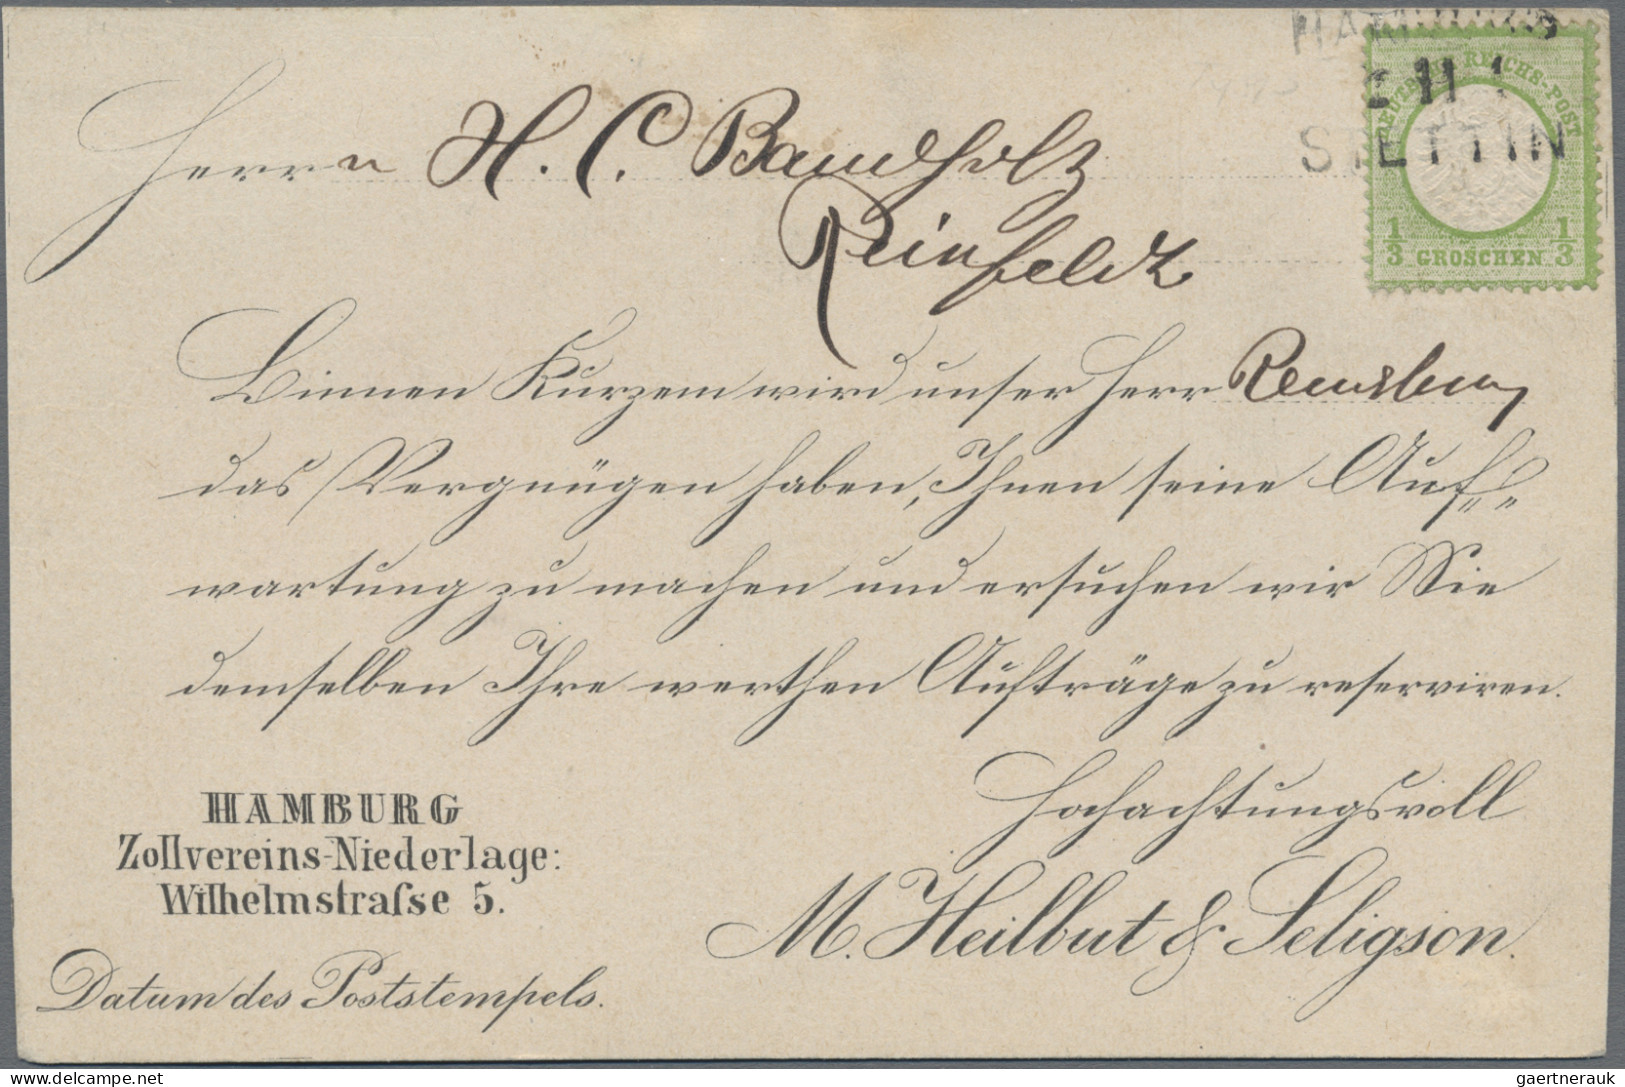 HAMBURG
DEUTSCHE REICHS-POST
11 1
STETTIN
1/3 GROSCHEN 1/3
Herrn H. C. Bandholz
Reinfeldt
Binnen Kurzem wird unser Herr
das Vergnügen haben, Ihnen seine Auf=
wartung zu machen und ersuchen wir Sie
demselben Ihre werthen Aufträge zu reserviren.
Hochachtungsvoll
M. Heilbut & Seligson.
HAMBURG
Zollvereins-Niederlage:
Wilhelmstraſse 5.
Datum des Poststempels.
gaertnerauk